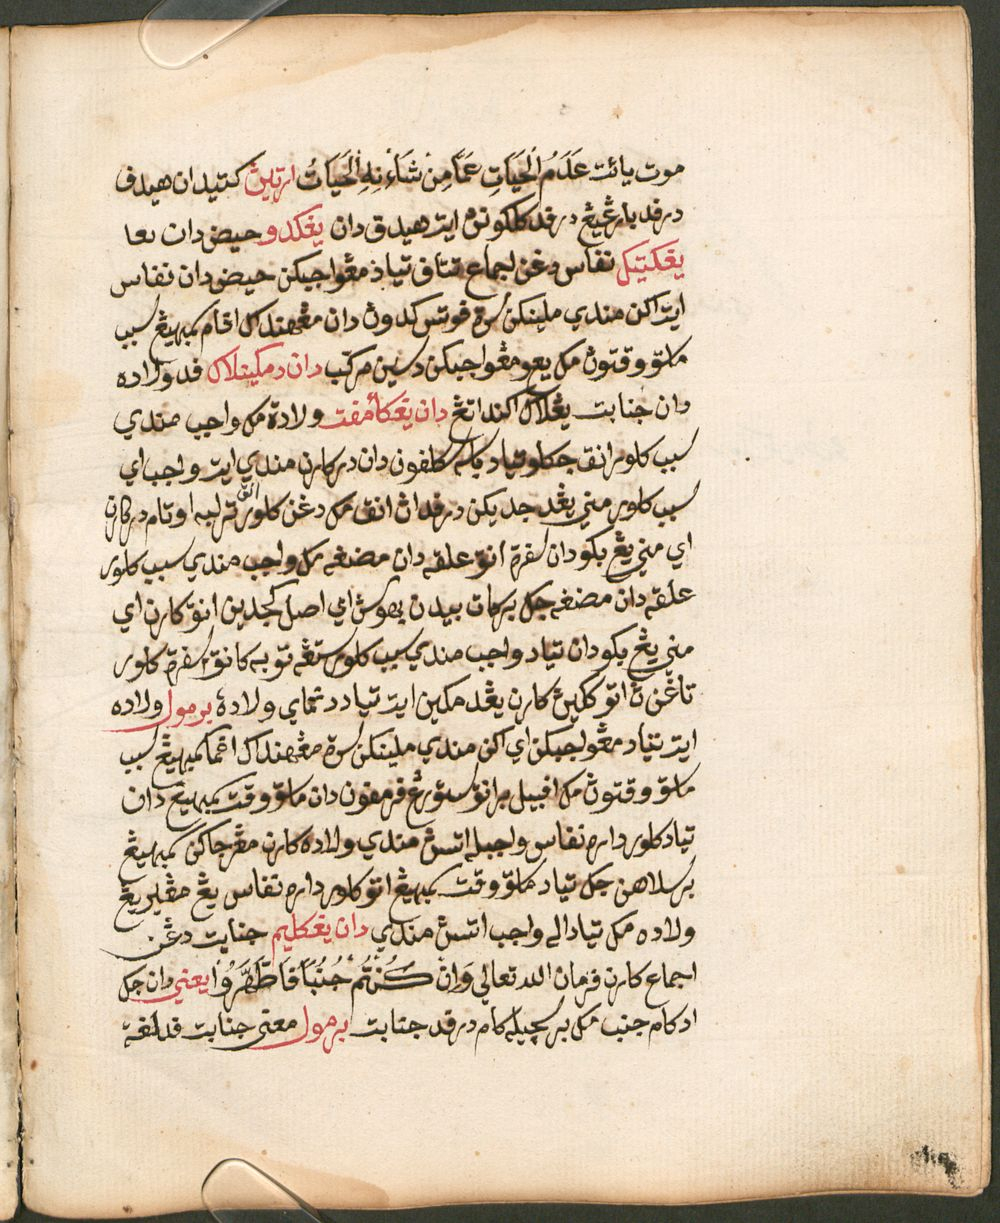 موت يائت عَدَمُ الْحَيَاتِ عَمَّا مِنْ شَأْنِهِ الْحَيَاتُ ارتيڽ كتيدان هيدف
درفد بارڠيڠ درفد كلكونڽ ايت هيدف دان يڠكدو حيض دان
يڠكتيك نفاس دڠن اجماع تتاف تياد مڠواجبكن حيض دان نفاس
ايت اكن مندي ملينكن سرة فوتس كدوڽ دان مڠهنداك اڠام سمبهيڠ سبب
ماسق وقتوڽ مك يعو مڠواجبكن دسين مركب دان دمكينلاك فد ولاده
دان جنابت يڠلاك اكنداتڠ دان يڠكأمفت ولادة مك واجب مندي
سبب كلور انق جكلو تياد باسه سكلفون دان دركارن مندي ايت واجب اي
سبب كلور مني يڠد جديكن درفدڽ انق مك دڠن كلور انق ترلبه اوتام دركارن
اي مني يڠ بكو دان سفرة انق علقه دان مضغه مك واجب مندي سبب كلور
علقه دان مضغه جك بركات بيدن بهوسڽ اي اصل كجدين انق كارن اي
مني يڠ بكو دان تياد واجب مندي سبب كلور ستڠه توبه كانق سفرة كلور
تاڠنڽ اتو كاكيڽ كارن يڠد مكين ايت تياد دنماي ولادة برمول ولاده
ايت تياد مڠواجبكن اي اكن مندي ملينكن سرة مڠهنداك اڠام سمبهيڠ سبب
ماسق وقتوڽ مك افبيل برانق سئورڠ فرمفون دان ماسق وقت سمبهيڠ دان
تياد كلور داره نفاس واجبله اتسڽ مندي ولاده كارن مڠرجاكن سمبهيڠ
برسلاهن جك تياد ماسق وقت سمبهيڠ اتو كلور داره نفاس يڠ مڠيريڠ
ولاده مك تيادله واجب اتسڽ مندي دان يڠكليم جنابت دڠن
اجماع كارن فرمان الله تعالى وَاِنْ كُنْتُمْ جُنُبًا فَاطَّهَّرُوْا يعني دان جك
اد كام جنب مك برسچيله كام درفد جنابت برمول معنى جنابت فد لغة